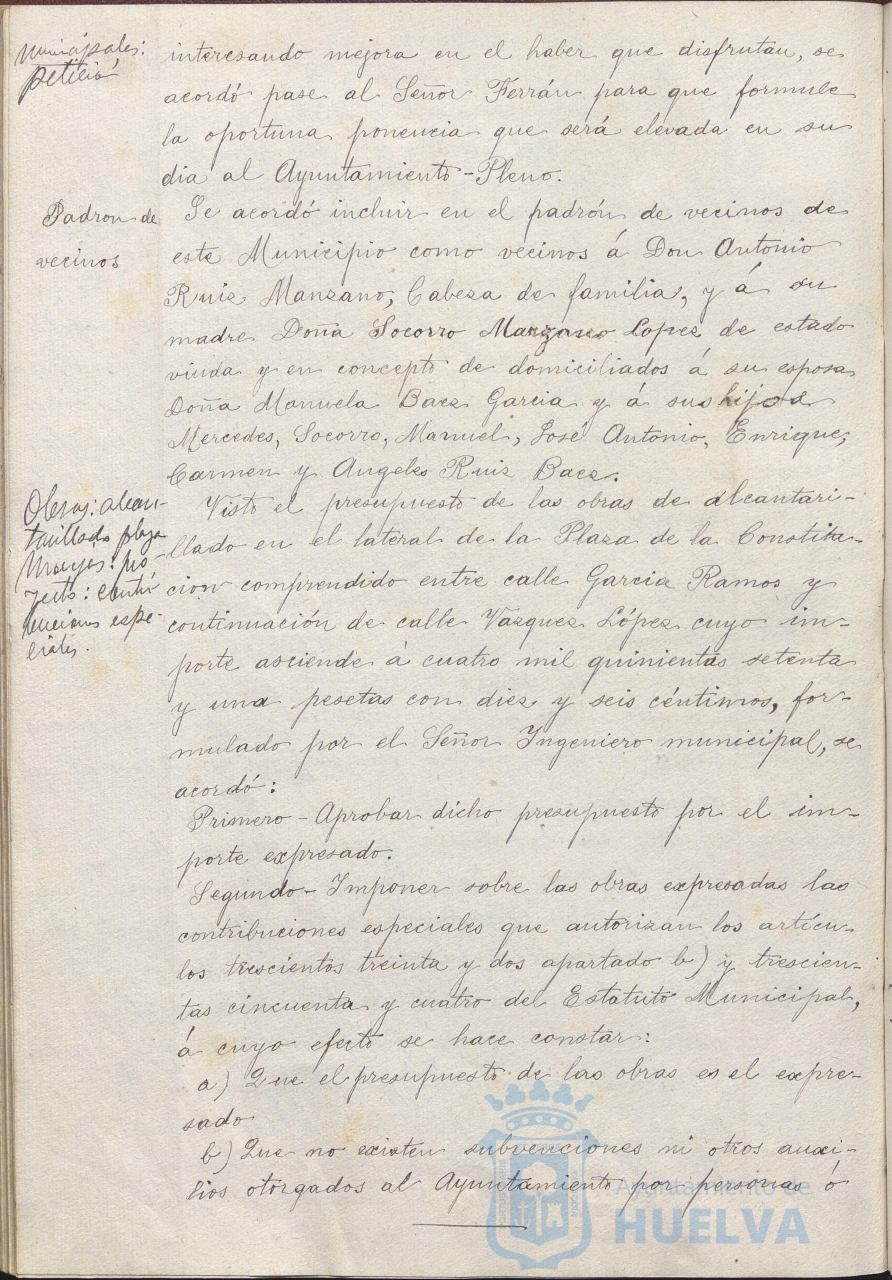 municipales:
petició
interesando mejora en el haber que disfrutan, se
acordó pase al Señor Ferrán para que formule
la oportuna ponencia que será elevada en su
dia al Ayuntamiento-Pleno.
Padron de
vecinos
Se acordó incluir en el padrón de vecinos de
este Municipio como vecinos á Don Antonio
Ruiz Manzano, Cabeza de familia, y á su
madre Doña Socorro Manzano Lopez de estado
viuda y en concepto de domiciliados á su esposa
Doña Manuela Baez Garcia y á sus hijos
Mercedes, Socorro, Manuel, José Antonio, Enrique,
Carmen y Angeles Ruiz Baez.
Obras: alcan-
tarillado plaza
Monjas: pro-
yecto: contri
buciones espe-
ciales.
Visto el presupuesto de las obras de alcantari-
llado en el lateral de la Plaza de la Constitu-
cion comprendido entre calle Garcia Ramos y
continuación de calle Vazquez López cuyo im-
porte asciende á cuatro mil quinientas setenta
y una pesetas con diez y seis céntimos, for-
mulado por el Señor Ingeniero municipal, se
acordó:
Primero - Aprobar dicho presupuesto por el im-
porte expresado.
Segundo - Imponer sobre las obras expresadas las
contribuciones especiales que autorizan los artícu-
los trescientos treinta y dos apartado b) y trescien-
tas cincuenta y cuatro del Estatuto Municipal,
á cuyo efecto se hace constar:
a) Que el presupuesto de las obras es el expre-
sado
b) Que no existen subvenciones ni otros auxi-
lios otorgados al Ayuntamiento por personas ó
Ayuntamiento de
HUELVA